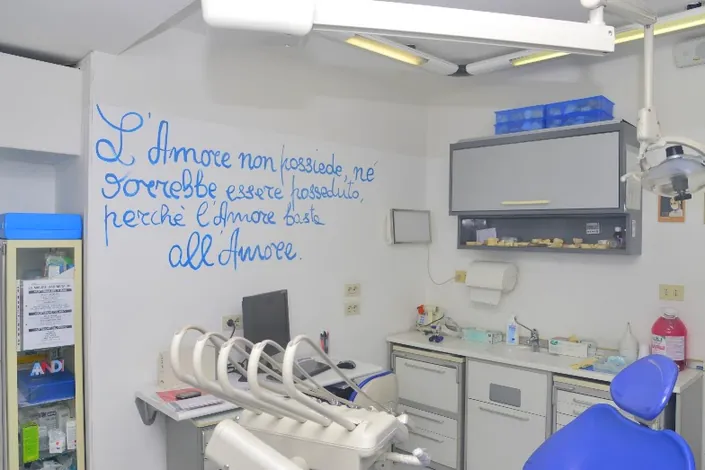 L'Amore non possiede, né
vorrebbe essere posseduto,
perchè l'Amore basta
all'Amore.